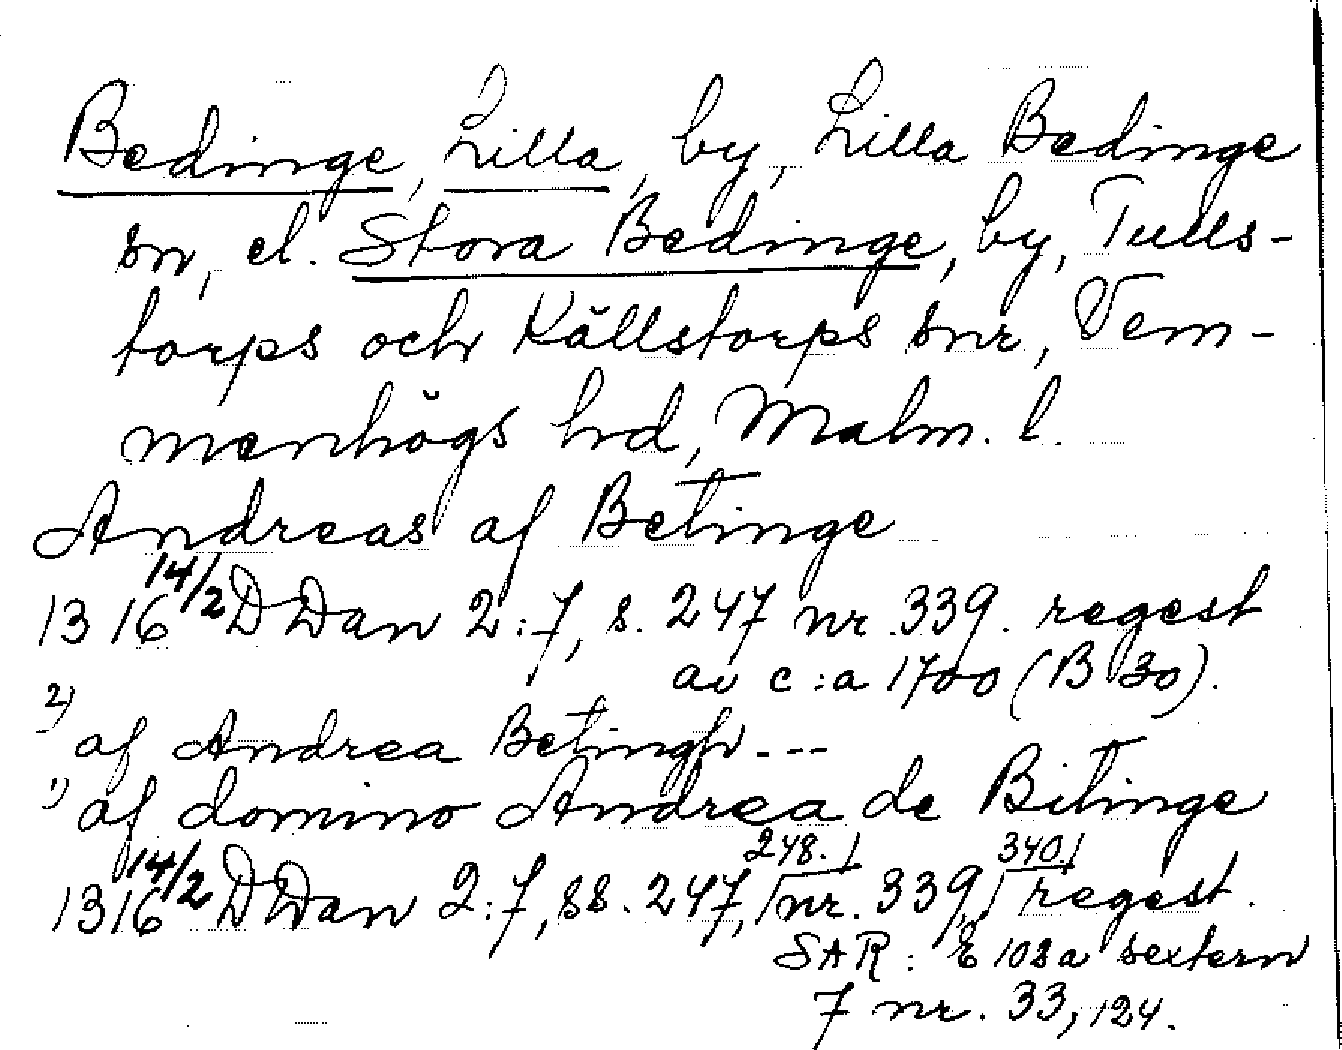 Bedinge, Lilla, by, Lilla Bedinge
sn, el. Stora Bedinge, by, Tulls-
torps och Källstorps snr, Vem-
menhögs hd, Malm. l.
Andreas af Betinge
1316 14/2 DDan 2:7, s. 247 nr. 339. regest
av c:a 1700 (B 30).
2) af Andrea Betingh---
1) af domino Andrea de Bitinge
1316 14/2 DDan 2:7, ss. 247, 248. nr. 339, 340. regest.
SAR: E 108a sextern
7 nr. 33, 124.